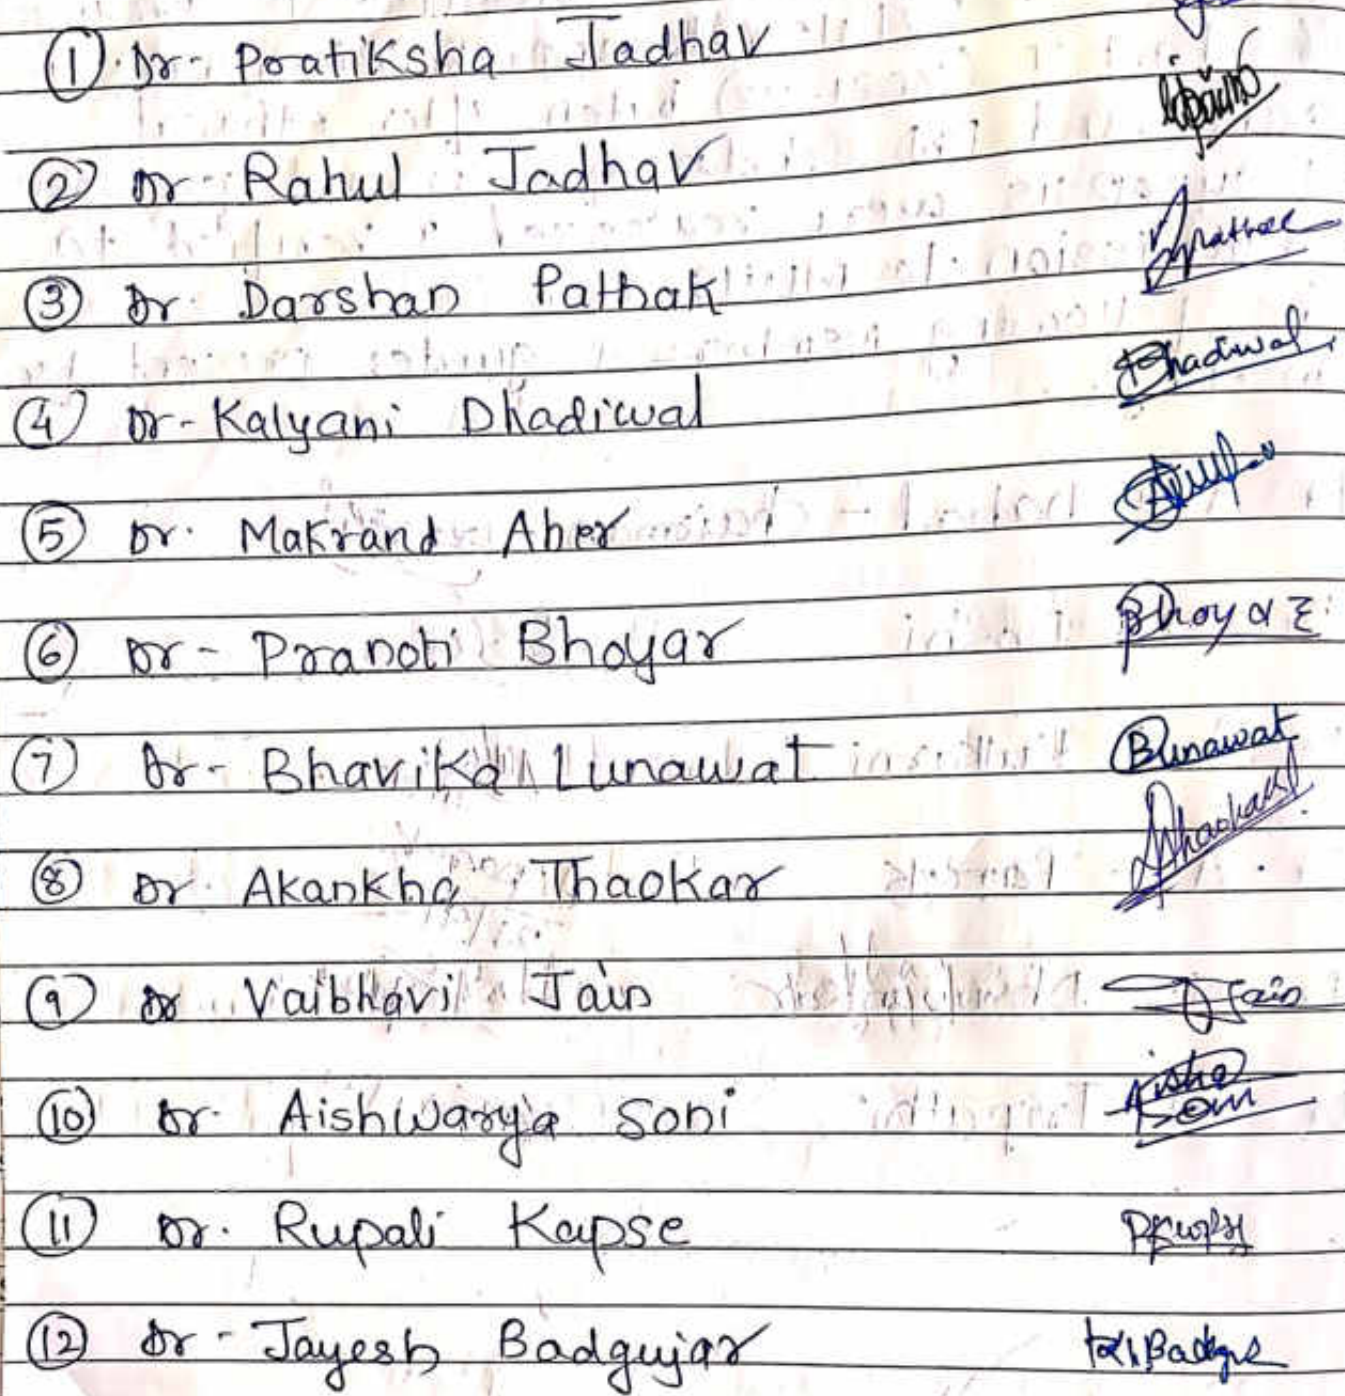 ① Dr. Pratiksha Jadhav
② Dr. Rahul Jadhav
③ Dr. Darshan Pathak
④ Dr. Kalyani Dhadiwal Dhadiwal
⑤ Dr. Makrand Aher
⑥ Dr- Pranoti Bhoyar
⑦ Dr- Bhavika Lunawat Blunawat
⑧ Dr. Akankha Thaokar
⑨ Dr Vaibhavi Jain Jain
⑩ Dr. Aishwarya Soni
⑪ Dr. Rupali Kapse
⑫ Dr- Jayesh Badgujar